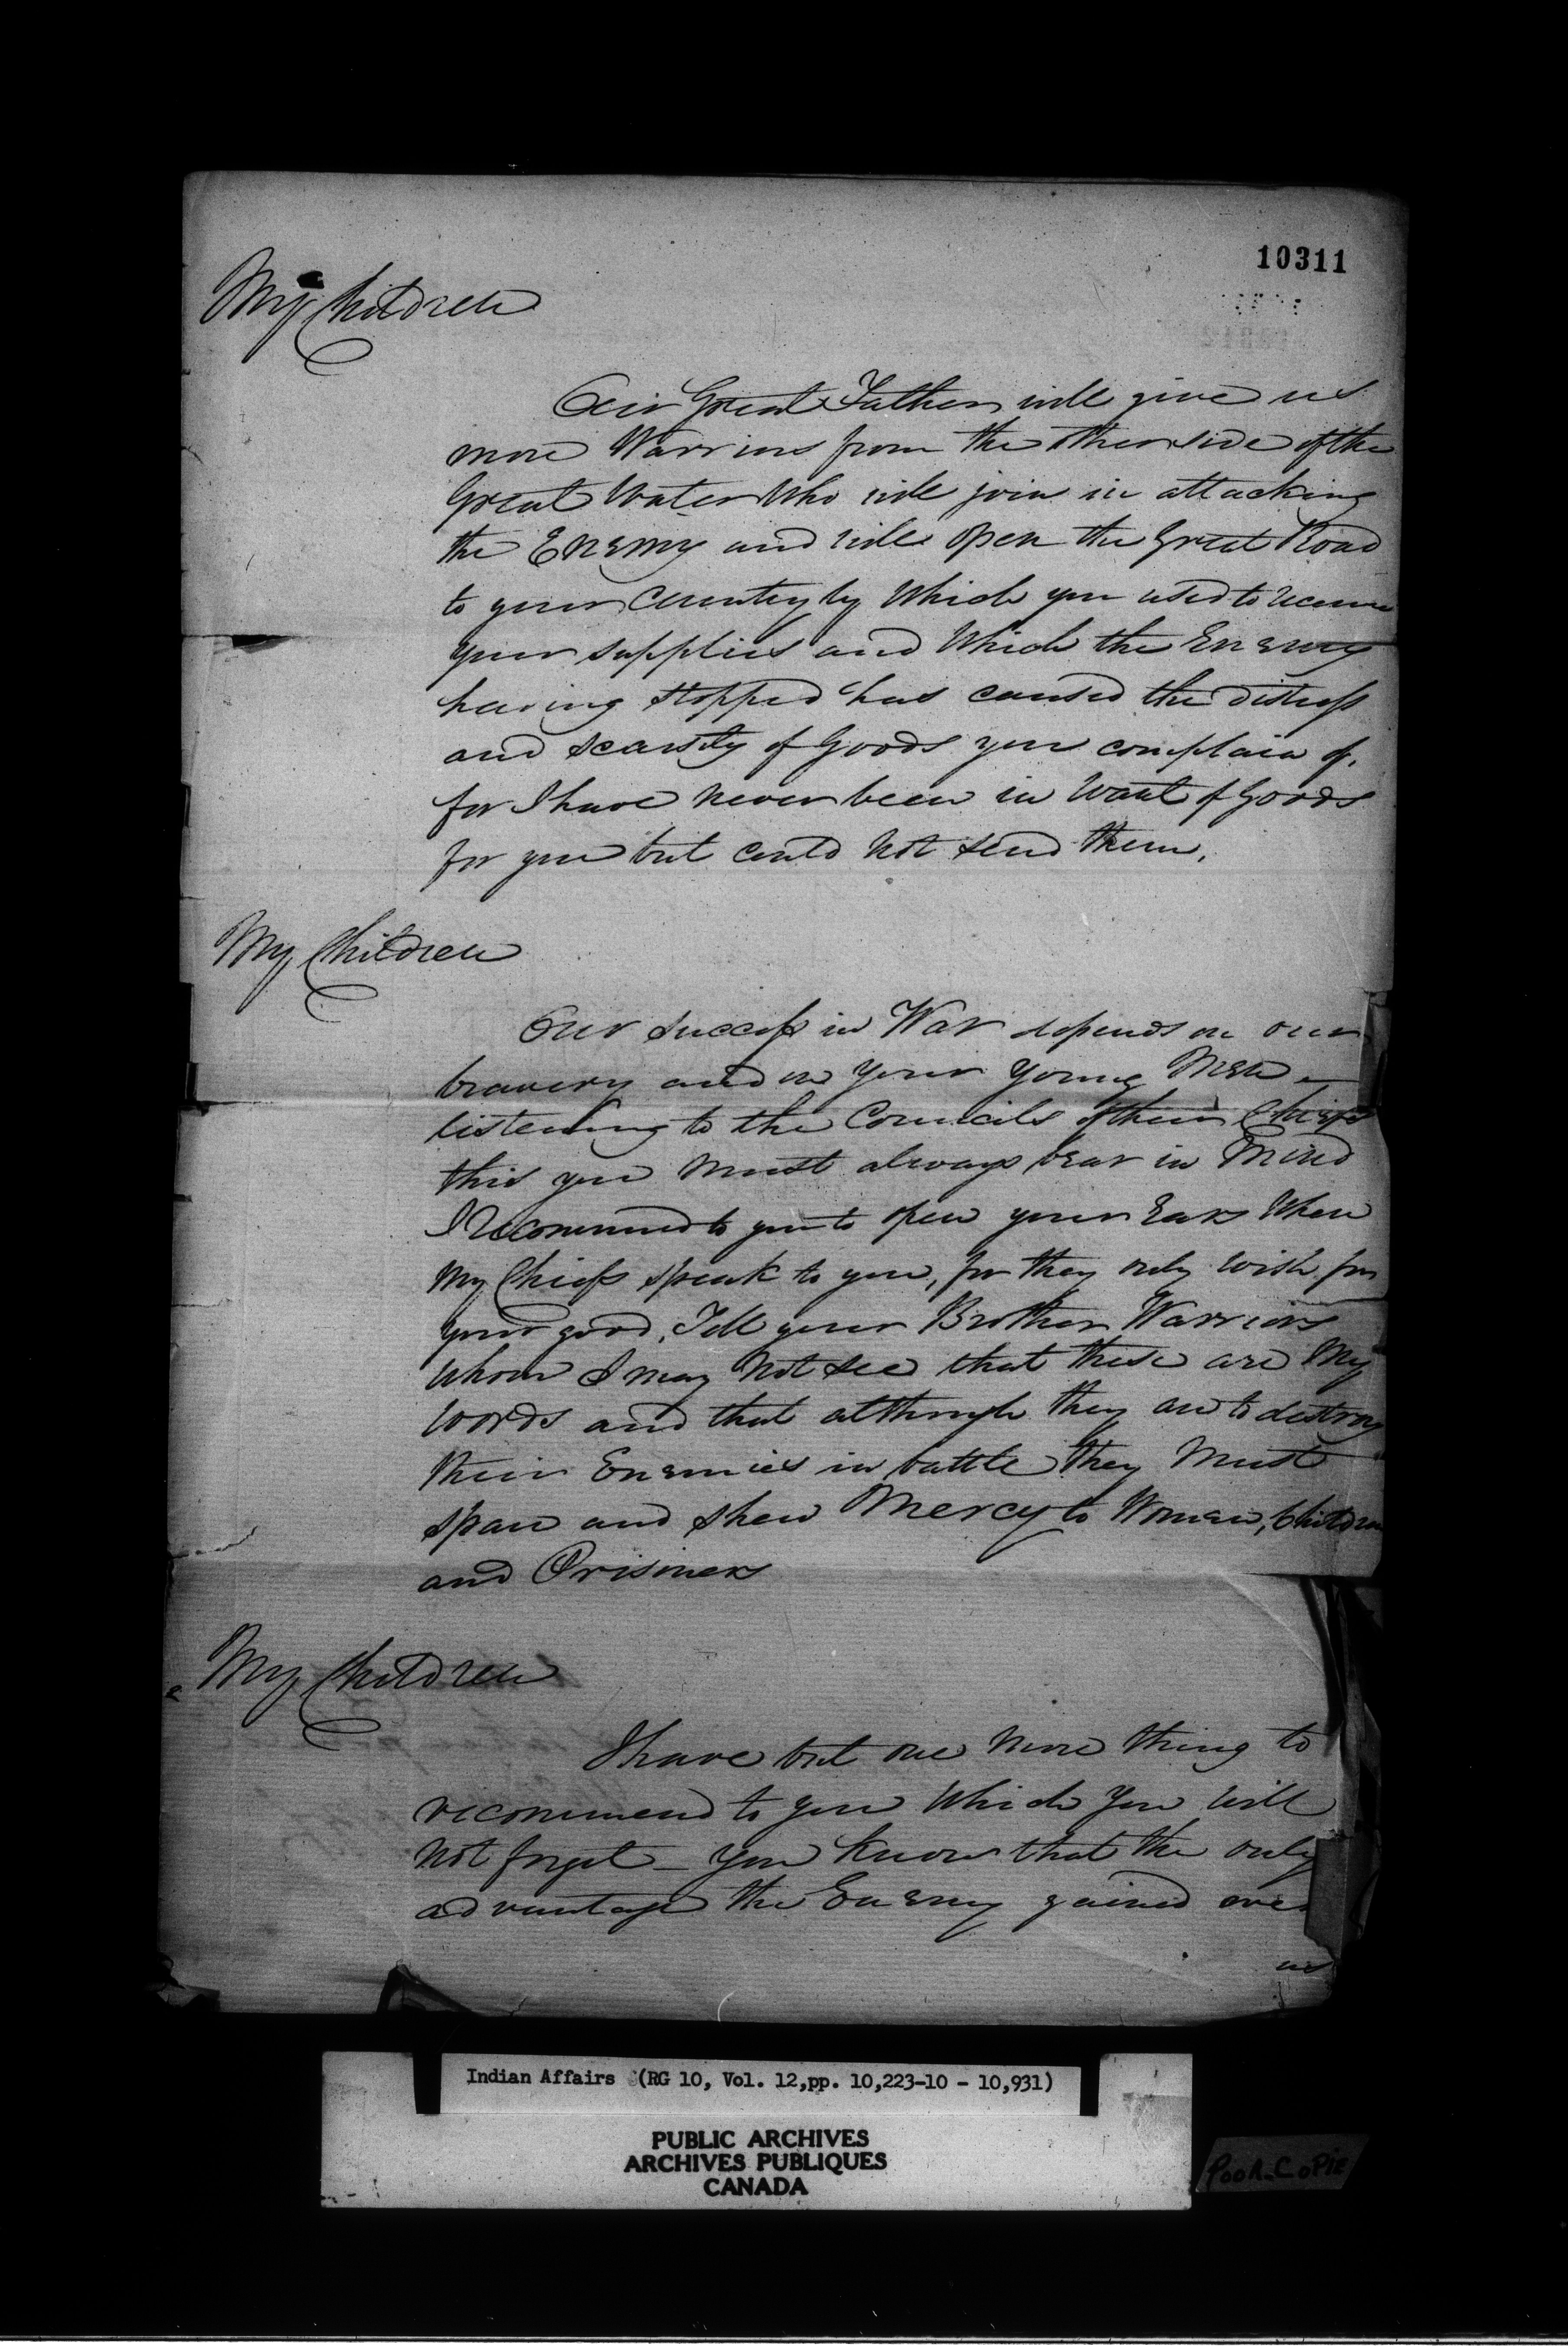 10311
My Children
Our Great Father will give us
more Warriors from the other side of the
Great Water Who will join in attacking
the Enemy and will open the Great Road
to your Country by Which you used to receive
your supplies and Which the Enemy
having stopped has caused the distress
and scarsity of Goods you complain of,
for I have never been in Want of Goods
for you but could Not send them.
My Children
Our success in War depends on our
bravery and on your Young Men –
listening to the Councils of their Chiefs
this you Must always bear in Mind
I recommend to you to open your Ears When
My Chiefs speak to you, for they only wish for
your good, Tell your Brother Warriors
Whom I may Not see that these are My
Words and that although they are to destroy
their Enemies in battle they Must
spare and shew Mercy to Women, Children
and Prisiners
My Children
I have but one More thing to
recommend to you Which You Will
Not forget – You Know that the only
advantage the Enemy gained over
us
Indian Affairs (RG 10, Vol. 12,pp. 10,223-10 - 10,931)
PUBLIC ARCHIVES
ARCHIVES PUBLIQUES
CANADA
POOR COPIE